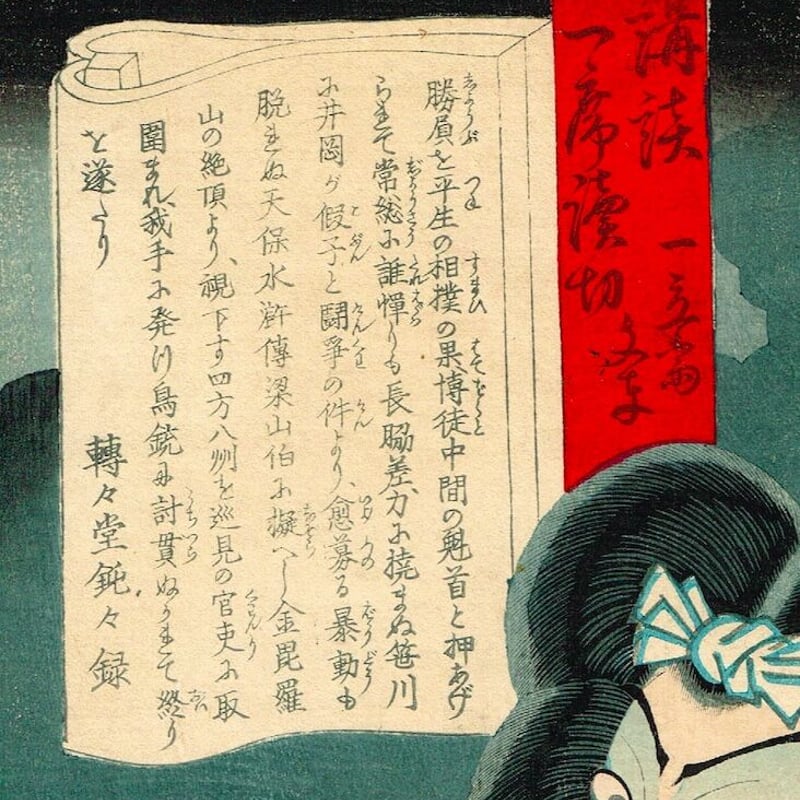 講談 一立斎
一席読切 文車
勝負を平生の相撲の果、博徒中間の魁首と押あげ
られて常総に誰憚りも長脇差、力に撓まぬ笹川
に井岡が假子と鬪爭の件より、愈募る暴動も
脱れぬ天保水滸傳梁山伯に擬へし金毘羅
山の絶頂より、視下す四方八州を巡見の官吏に取
圍まれ、我手に発け鳥銃に計貫ぬかれて終り
を遂たり
轉々堂鈍々録